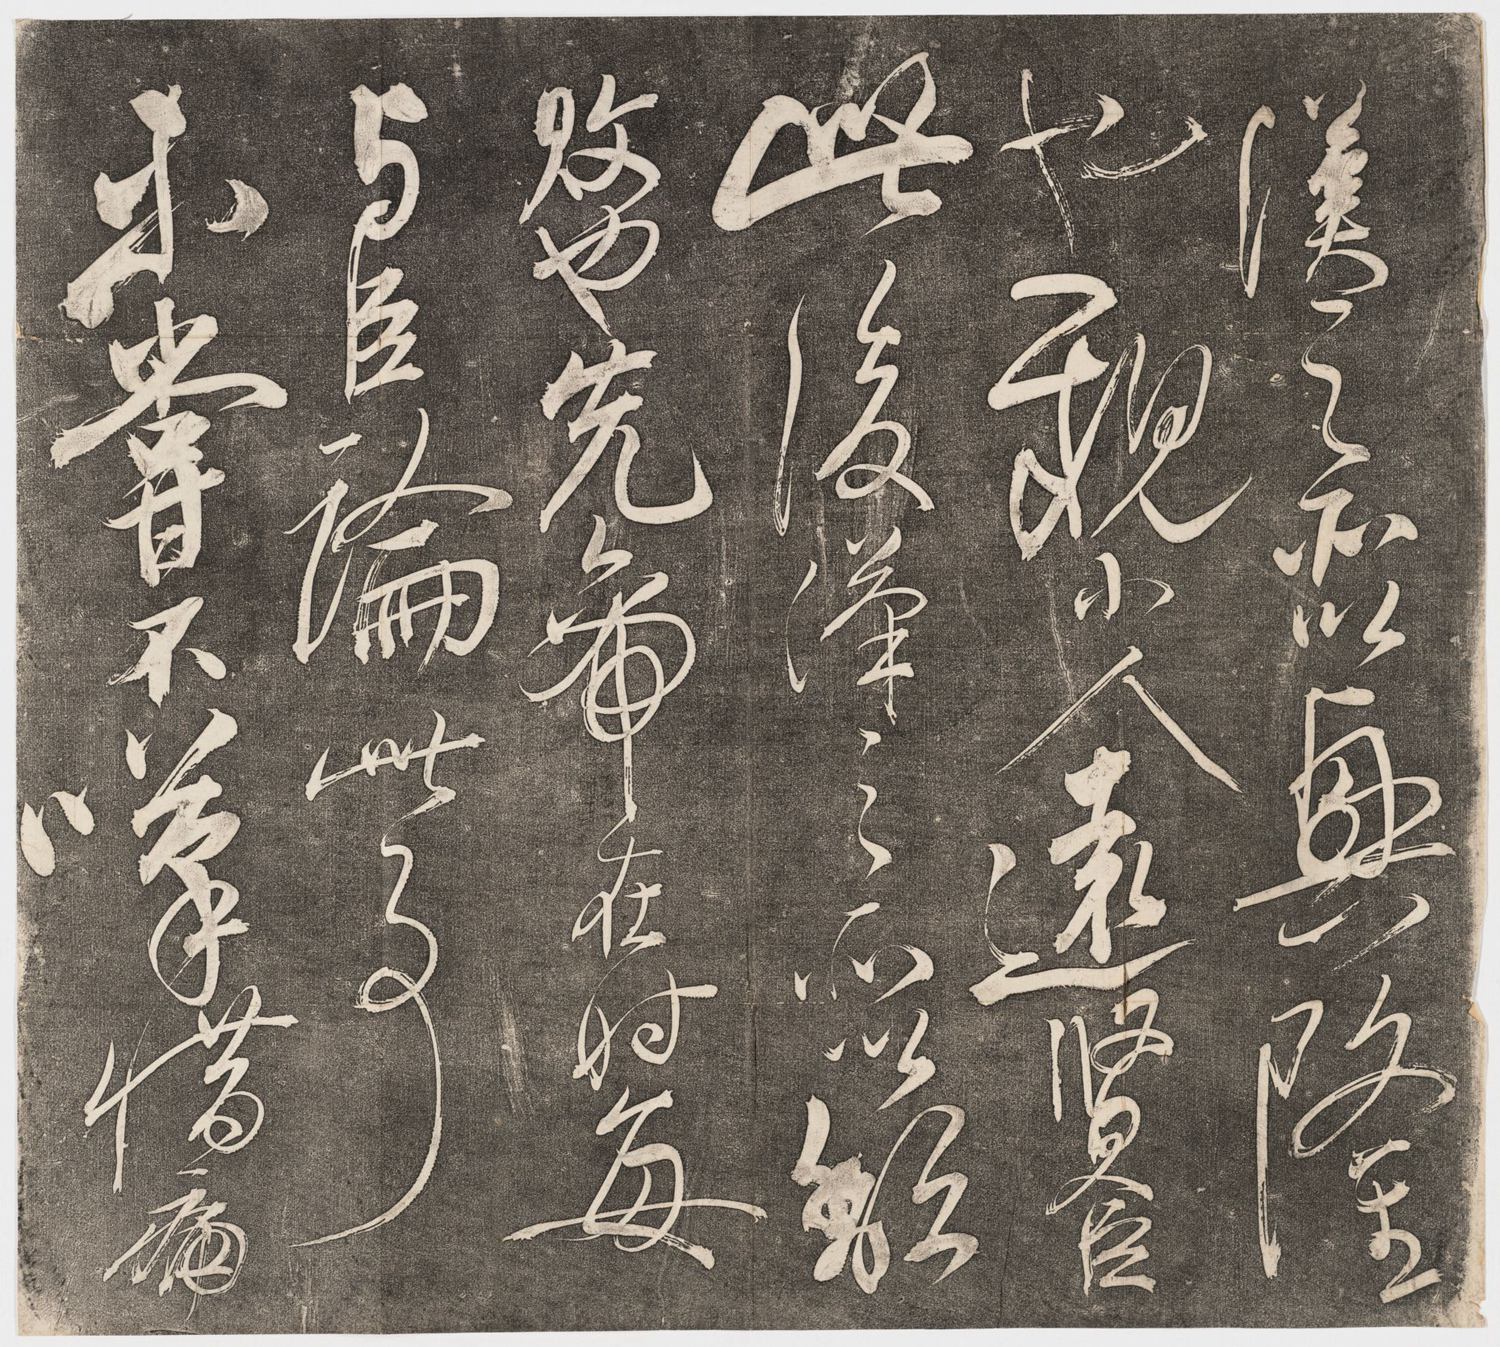 漢之所以興隆
也親小人遠賢臣
此後漢之所以頹
敗也先帝在时每
与臣論此事
未嘗不嘆惜痛